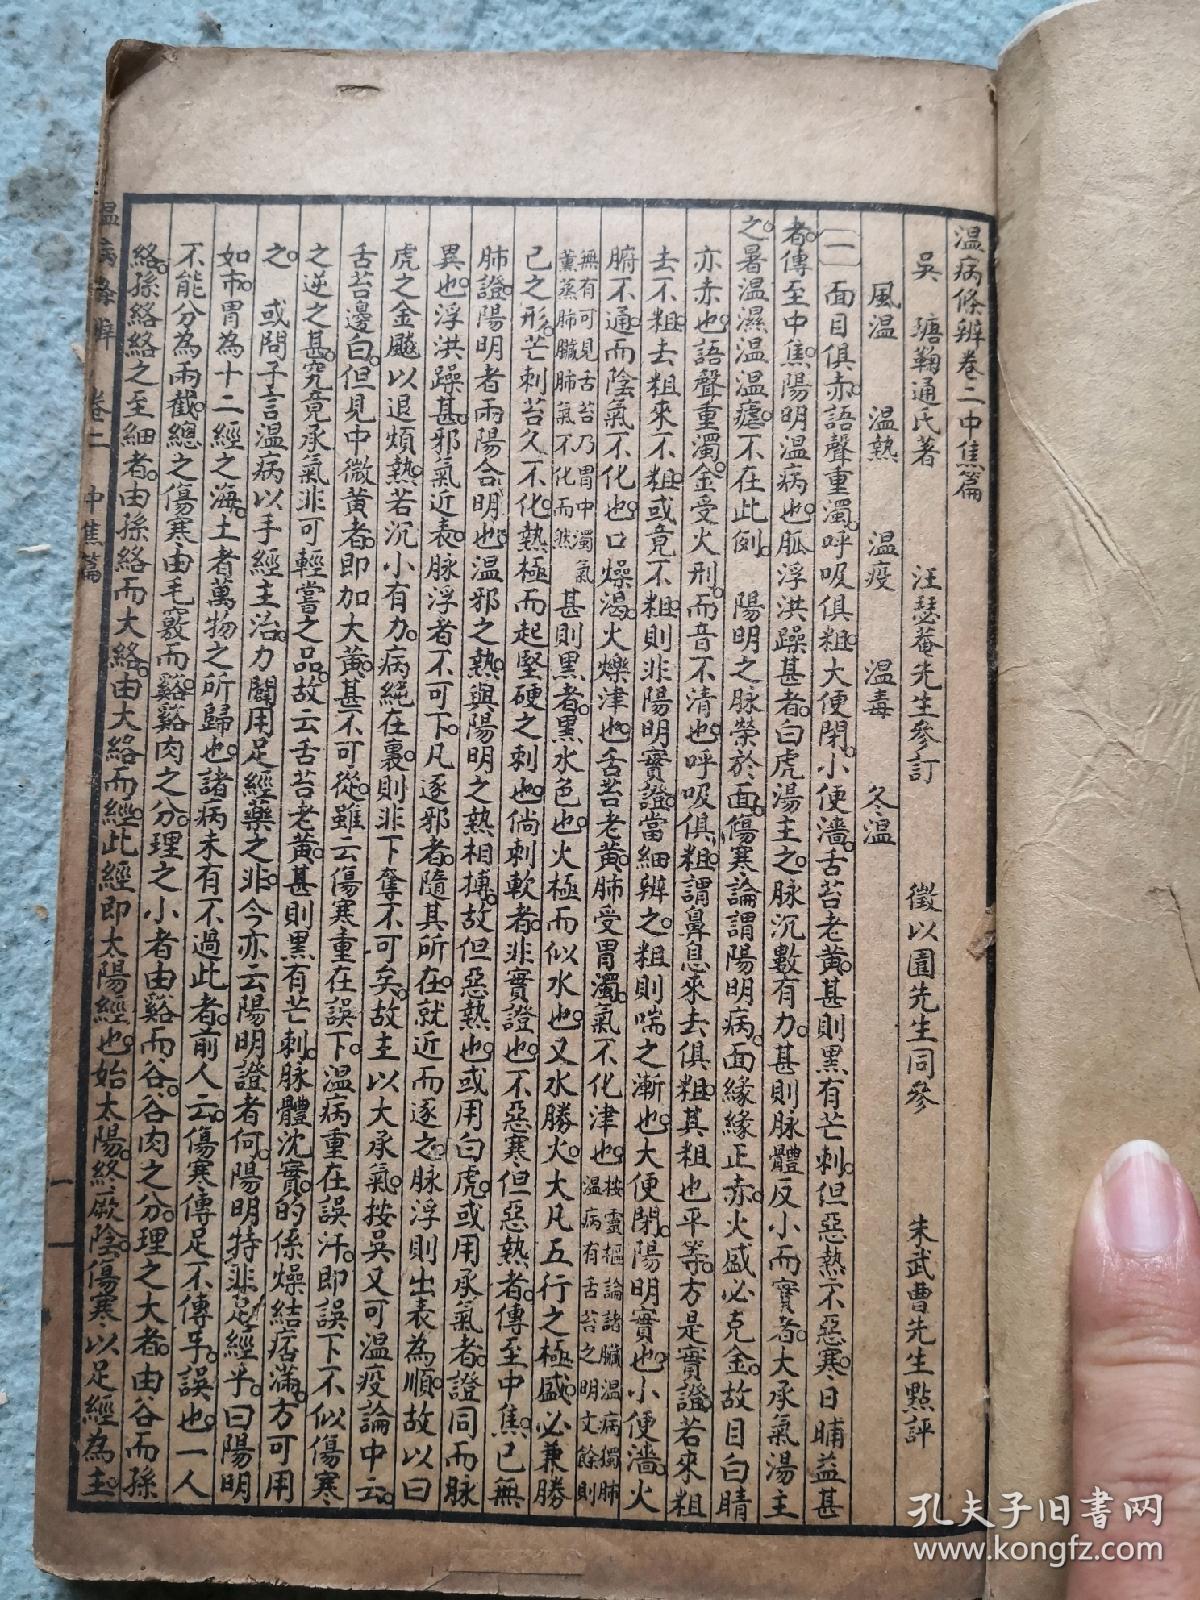 溫病條辨卷二中焦篇
吳 瑭鞠通氏著 汪瑟菴先生參訂 徵以園先生同參 朱武曹先生點評
風溫 溫熱 溫疫 溫毒 冬溫
一 面目俱赤。語聲重濁。呼吸俱粗。大便閉。小便濇。舌苔老黃。甚則黑有芒刺。但惡熱不惡寒。日晡益甚
者。傳至中焦。陽明溫病也。脈浮洪躁甚者。白虎湯主之。脈沉數有力。甚則脈體反小而實者。大承氣湯主
之。暑溫濕溫溫瘧。不在此例。 陽明之脈榮於面。傷寒論謂陽明病。面緣緣正赤。火盛必克金。故目白睛
亦赤也。語聲重濁。金受火刑。而音不清也。呼吸俱粗。謂鼻息來去俱粗。其粗也平等。方是實證。若來粗
去不粗。去粗來不粗。或竟不粗。則非陽明實證。當細辨之。粗則喘之漸也。大便閉。陽明實也。小便濇。火
腑不通。而陰氣不化也。口燥渴。火爍津也。舌苔老黃。肺受胃濁。氣不化津也。按靈樞論諸臟溫病獨肺
溫病有舌苔之明文餘則
無有可見舌苔乃胃中濁氣
薰蒸肺臟肺氣不化而然 甚則黑者。黑水色也。火極而似水也。又水勝火。大凡五行之極盛。必兼勝
己之形。芒刺苔久不化。熱極而起堅硬之刺也。倘刺軟者。非實證也。不惡寒。但惡熱者。傳至中焦。已無
肺證。陽明者。兩陽合明也。溫邪之熱。與陽明之熱相搏。故但惡熱也。或用白虎。或用承氣者。證同而脈
異也。浮洪躁甚。邪氣近表。脈浮者不可下。凡逐邪者。隨其所在。就近而逐之。脈浮則出表為順。故以白
虎之金飈以退煩熱。若沉小有力。病純在裏。則非下奪不可矣。故主以大承氣。按吳又可溫疫論中云。
舌苔邊白。但見中微黃者。即加大黃。甚不可從。雖云傷寒重在誤下。溫病重在誤汗。即誤下不似傷寒
之逆之甚。究竟承氣非可輕嘗之品。故云舌苔老黃。甚則黑有芒刺。脈體沉實。的係燥結痞滿。方可用
之。 或問子言溫病以手經主治。力闢用足經藥之非。今亦云陽明證者何。陽明特非足經乎。曰陽明
如市。胃為十二經之海。土者萬物之所歸也。諸病未有不過此者。前人云。傷寒傳足不傳手。誤也。一人
不能分為兩截。總之傷寒由毛竅而谿。谿肉之分。理之小者。由谿而谷。谷肉之分。理之大者。由谷而孫
絡。孫絡絡之至細者。由孫絡而大絡。由大絡而經。此經即太陽經也。始太陽。終厥陰。傷寒以足經為主。
溫病條辨 卷二 中焦篇 一
孔夫子旧书网
www.kongfz.com